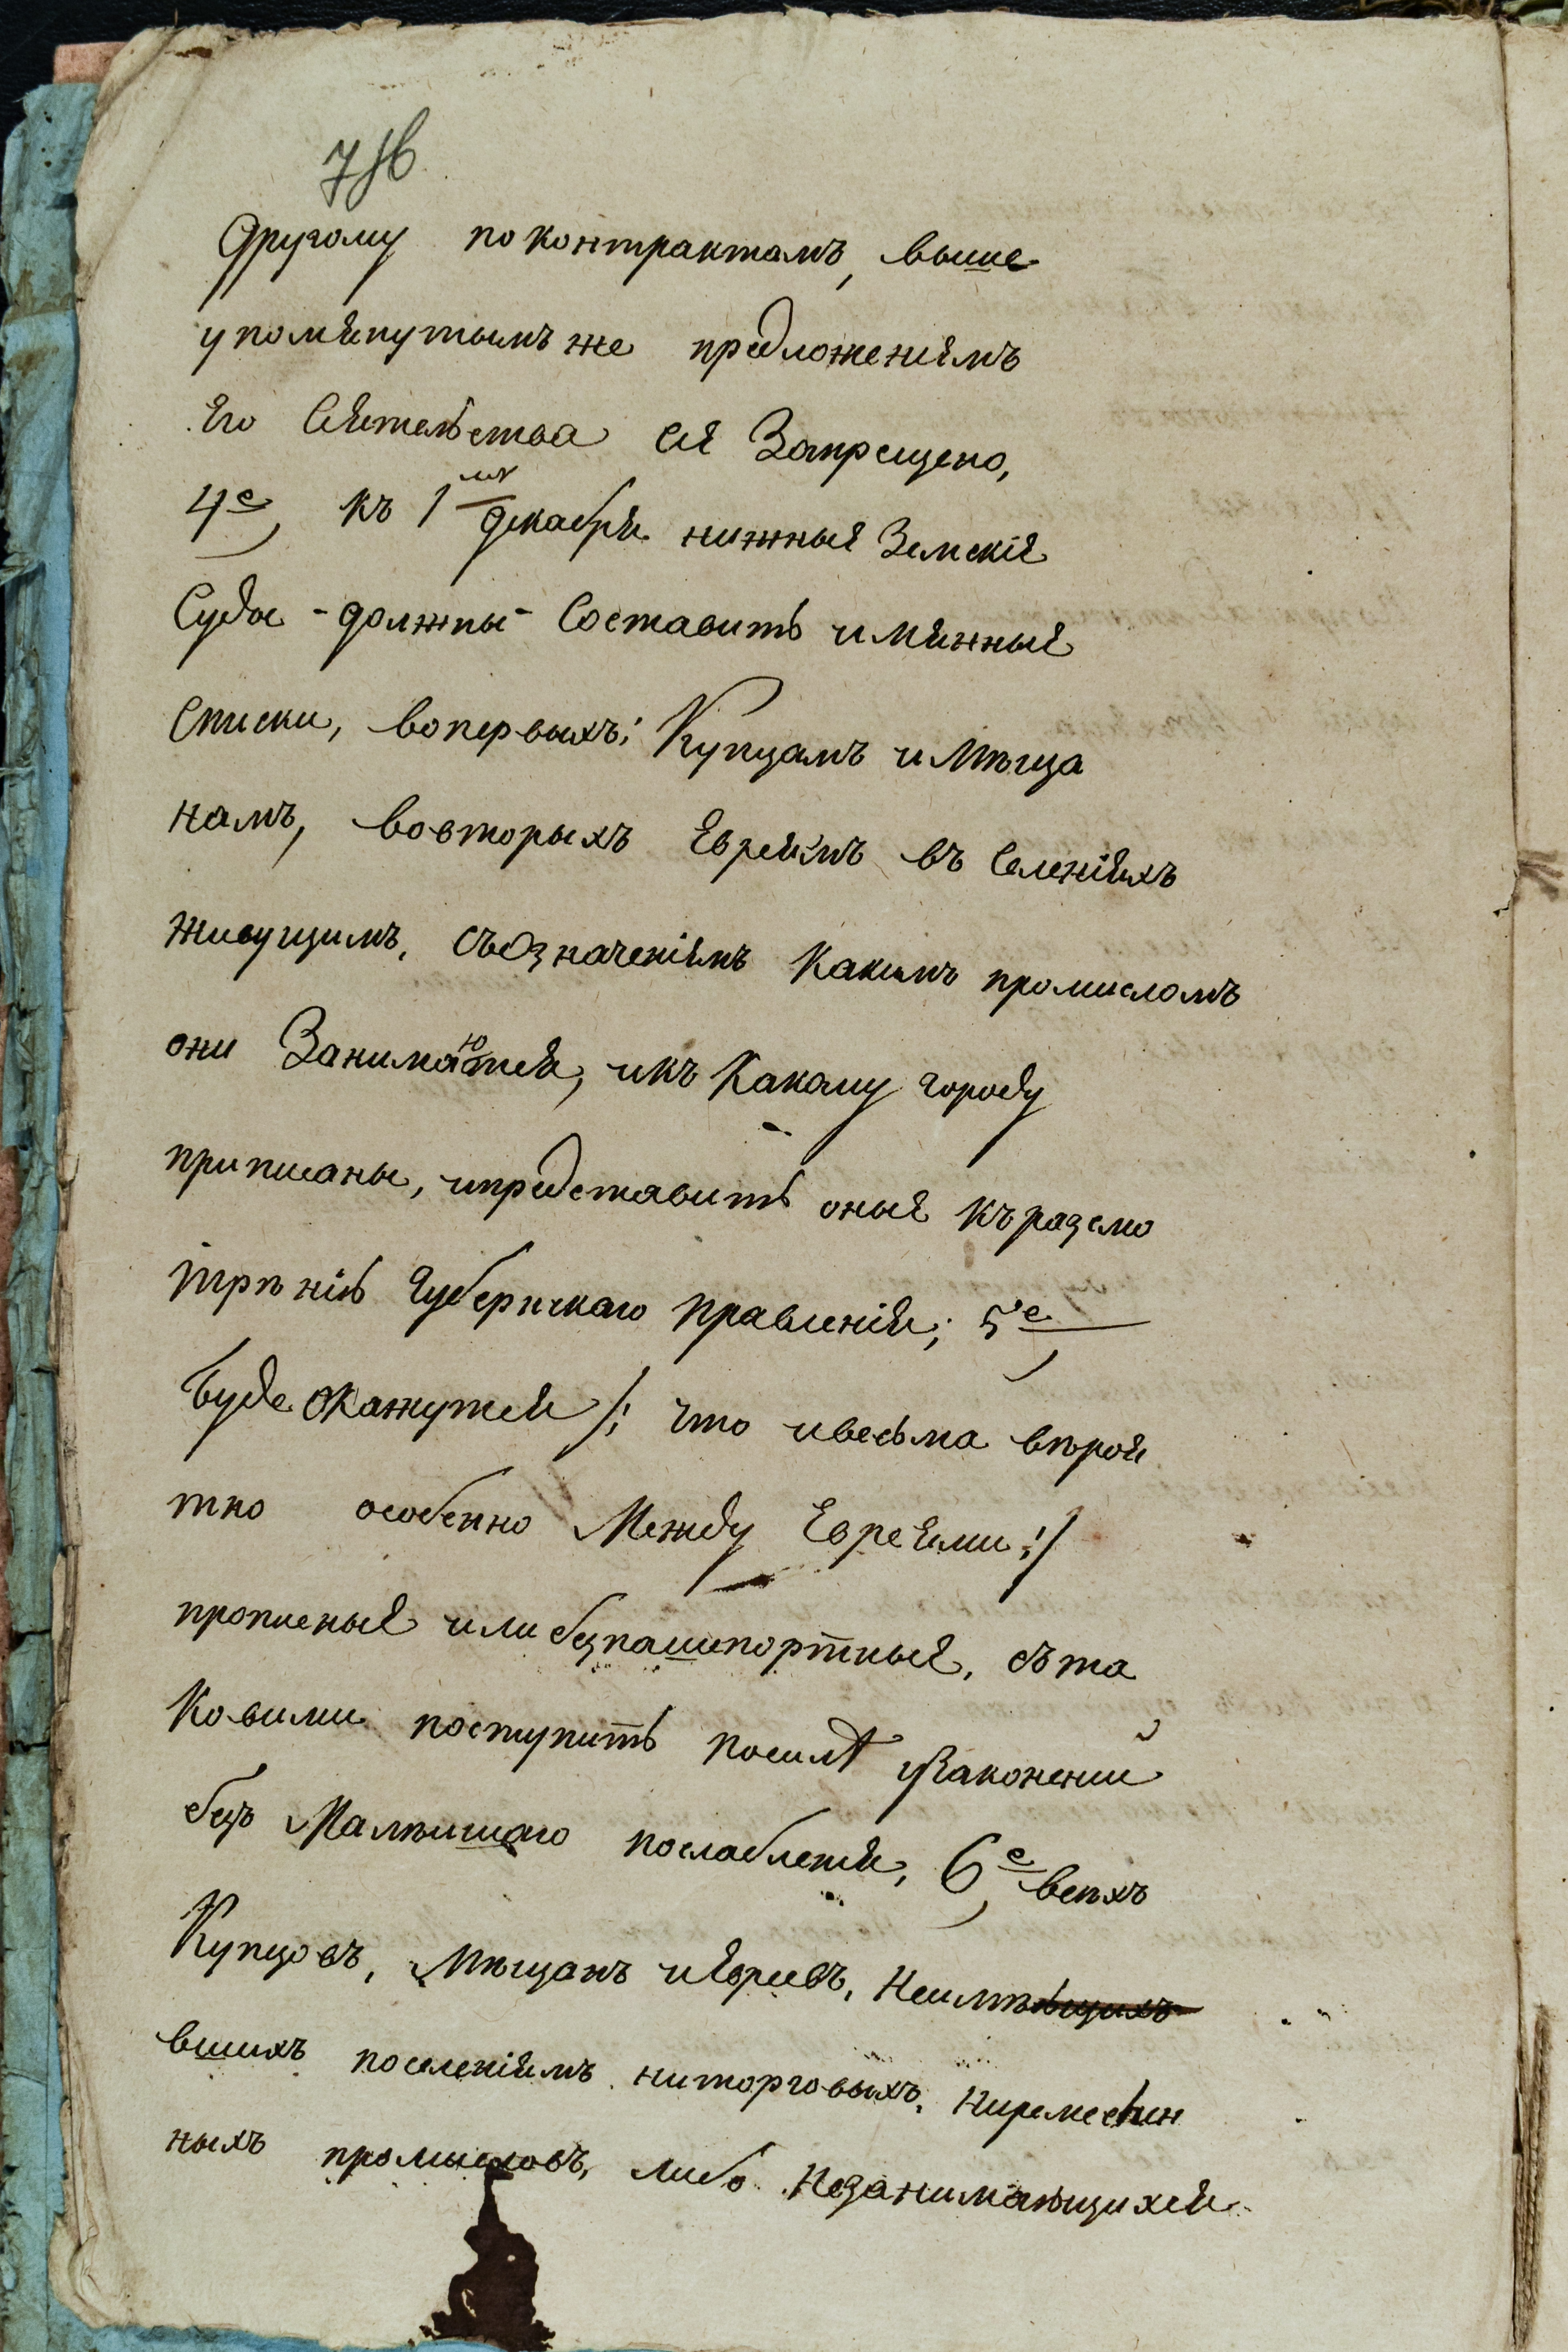 7 об
другому поконтрактамъ, выше
упомянутымъ же предложениемъ
Его Сиятельства сие Запрещено,
4е, къ 1му декабря нижные Земские
Суды - должны - Составить имянные
Списки, вопервыхъ: Купцамъ иМѣща
намъ, вовторыхъ Евреямъ въ Селенияхъ
живущимъ, съОзначениемъ какимъ промысломъ
они Занимаются, икъ какому городу
приписаны, ипредставить оные къразсмо
трѣнию Губернскаго правления; 5е,
Буде Окажутся /: что ивесьма вѣроя
тно особенно Между Евреями :/
прописные или безпашпортные, съта
ковыми поступить посилѣ узаконений
безъ Малѣишаго послабления, 6е, всѣхъ
Купцовъ, Мѣщанъ иЕвреевъ, Неимѣющихъ
вшихъ поселениямъ ниторговыхъ, ниремеслен
ныхъ промысловъ, либо Незанимающихся